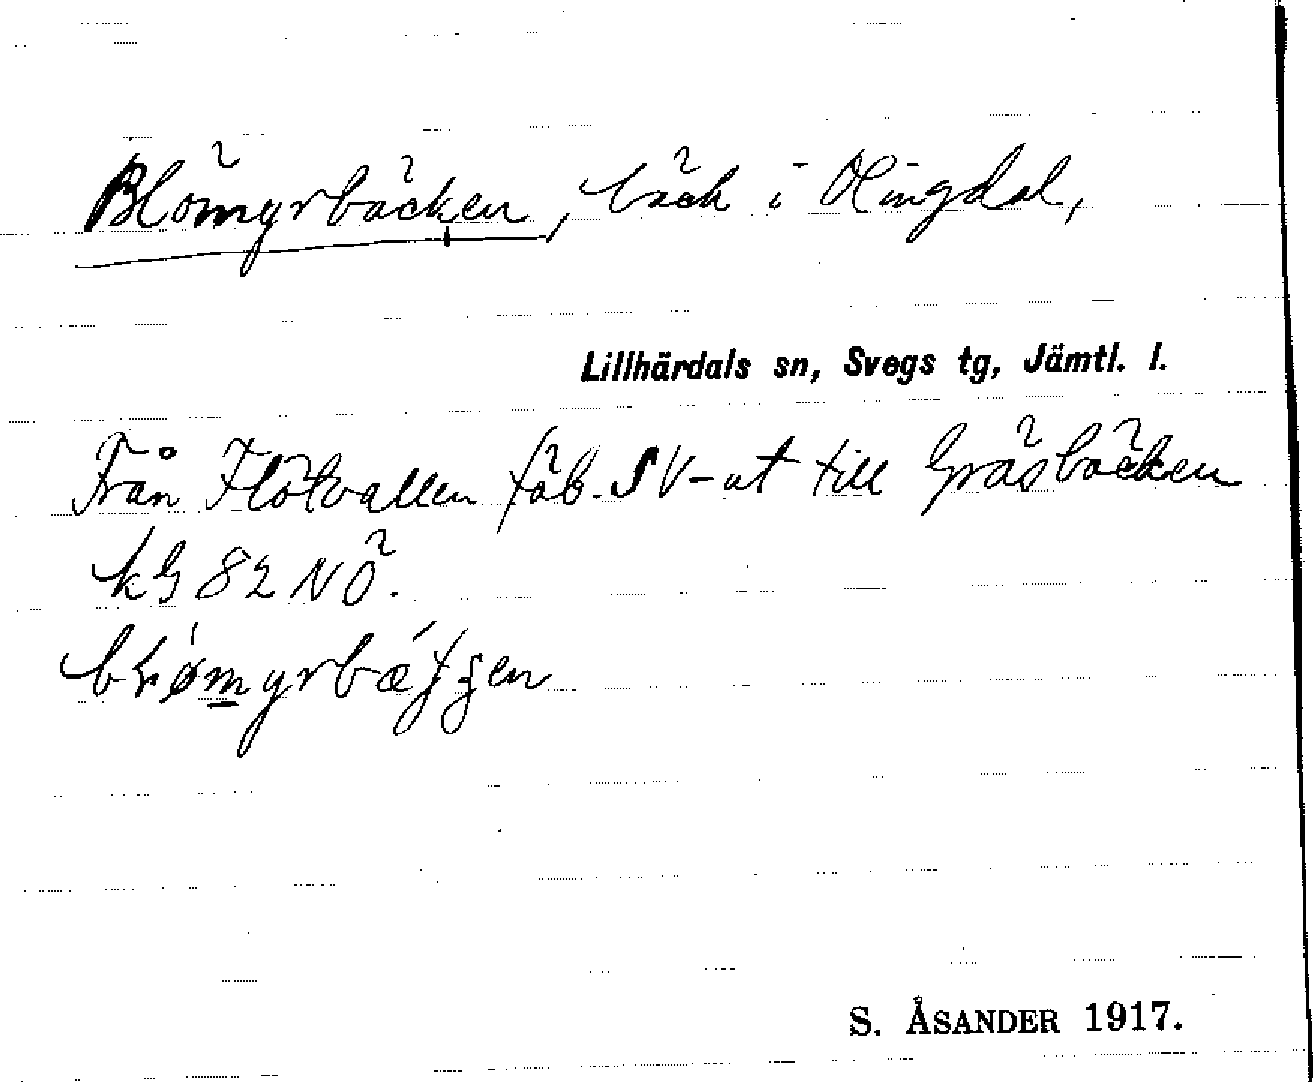 Blömyrbäcken, bäck i Olingdal,
Lillhärdals sn, Svegs tg, Jämtl. l.
Från Flötvallen fäb. SV-ut till Gräsbäcken
kG 82 NÖ.
S. ÅSANDER 1917.